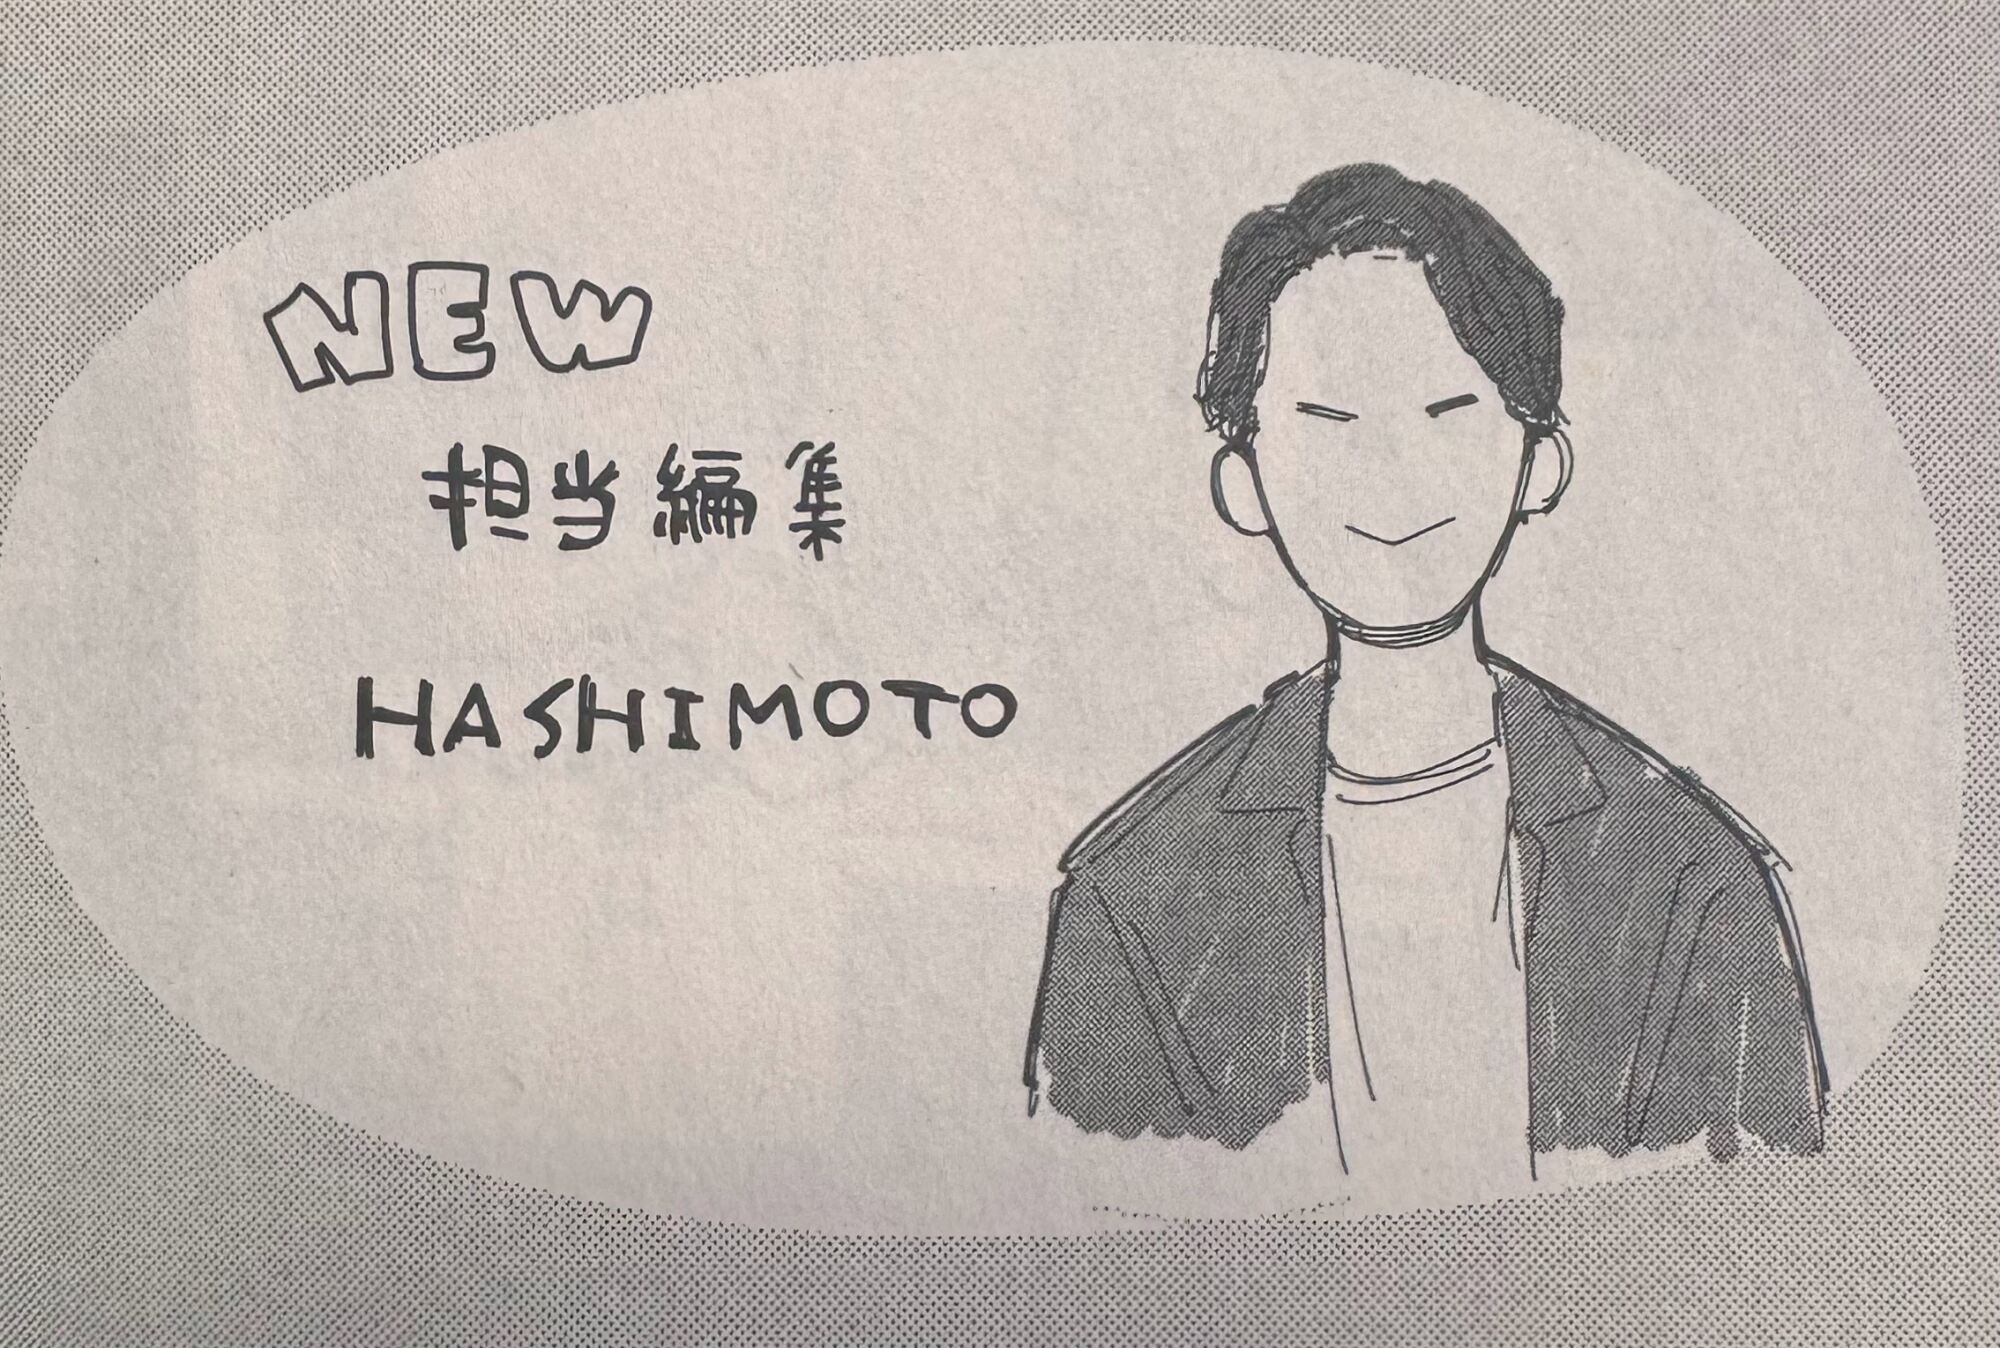 NEW
担当編集
HASHIMOTO